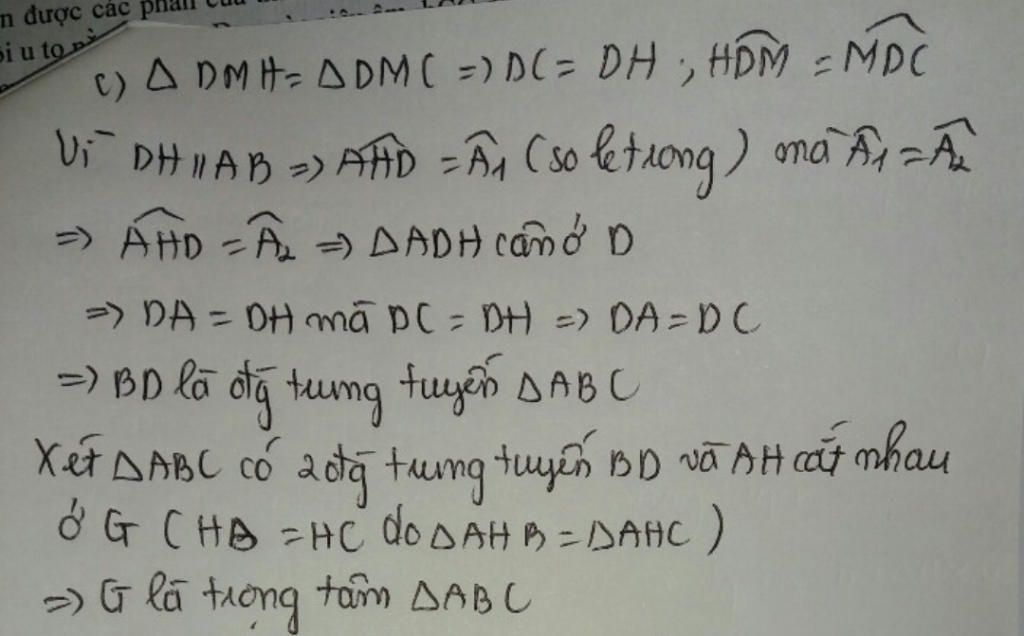 n được các phần của
c) Δ DMH = Δ DMC => DC = DH ; \widehat{HDM} = \widehat{MDC}
Vì DH // AB => \widehat{AHD} = \widehat{A}₁ (so le trong) mà \widehat{A}₁ = \widehat{A}₂
=> \widehat{AHD} = \widehat{A}₂ => ΔADH cân ở D
=> DA = DH mà DC = DH => DA = DC
=> BD là đtg trung tuyến ΔABC
Xét ΔABC có 2 đtg trung tuyến BD và AH cắt nhau
ở G (HB = HC do ΔAHB = ΔAHC)
=> G là trọng tâm ΔABC